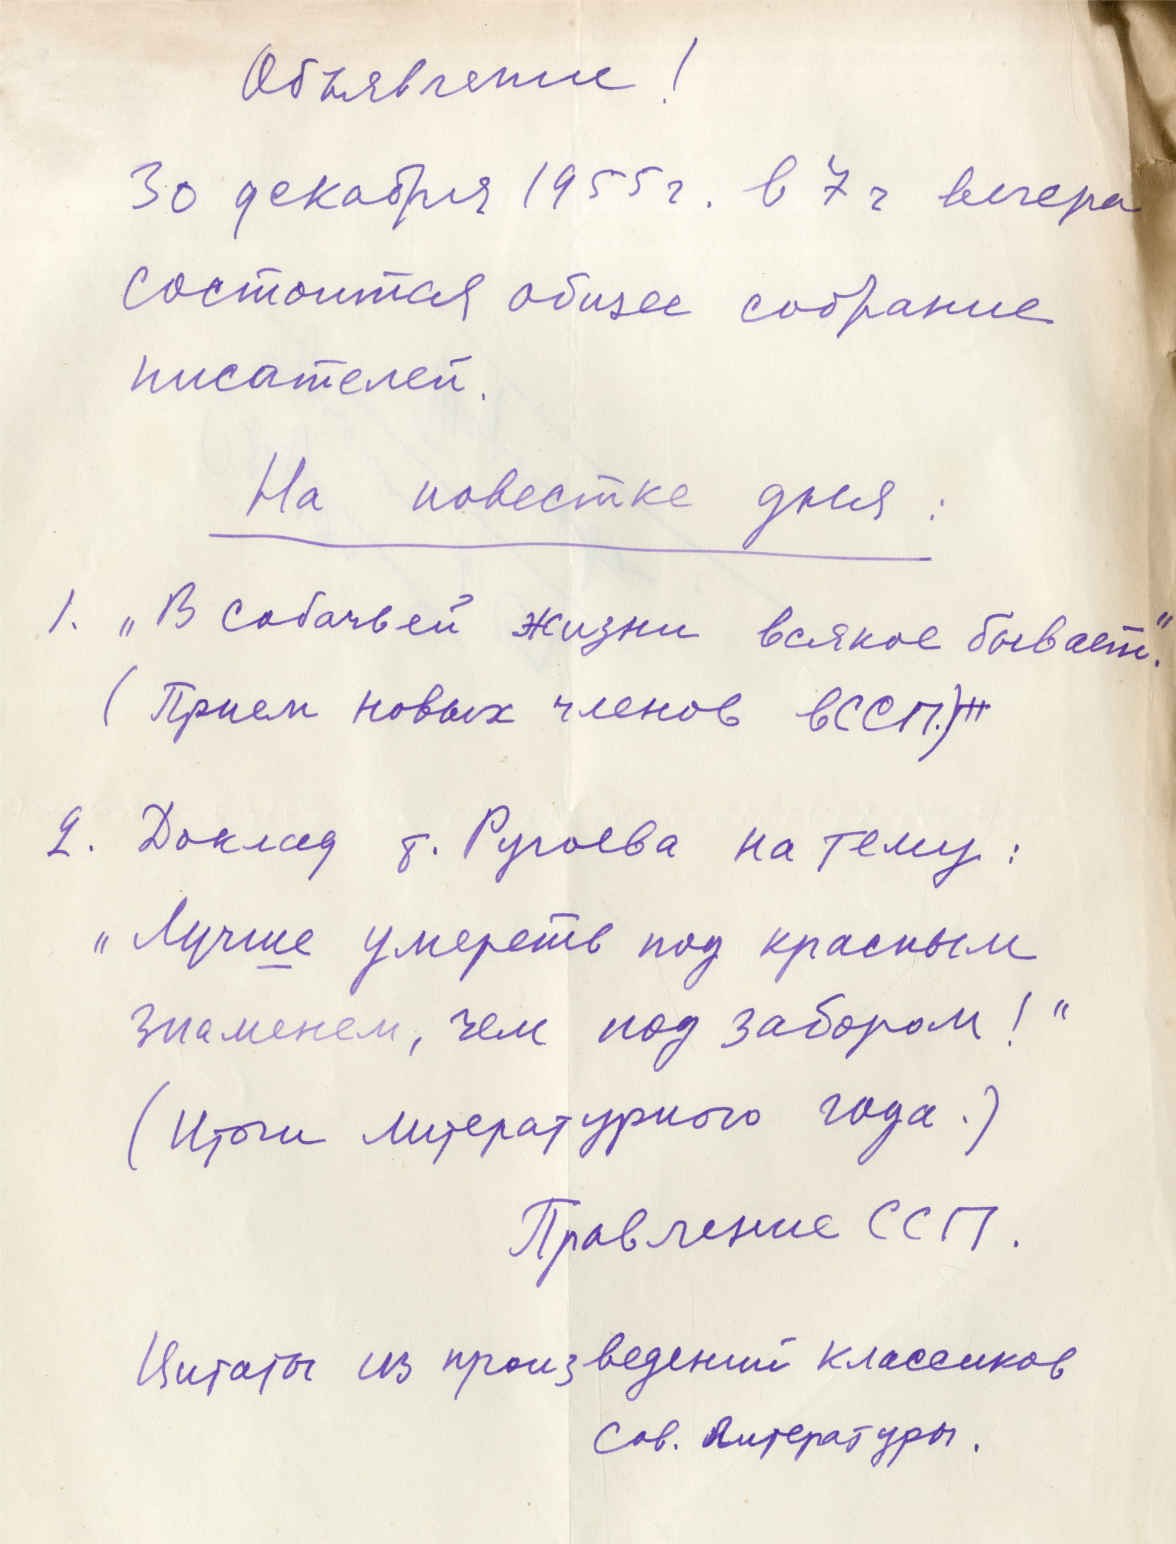 Объявление!
30 декабря 1955 г. в 7 ч вечера
состоится общее собрание
писателей.
На повестке дня:
1. „В собачьей жизни всякое бывает."
(Прием новых членов в ССП.)
2. Доклад т. Ругоева на тему:
„Лучше умереть под красным
знаменем, чем под забором!"
(Итоги литературного года.)
Правление ССП.
Цитаты из произведений классиков
Сов. Литературы.